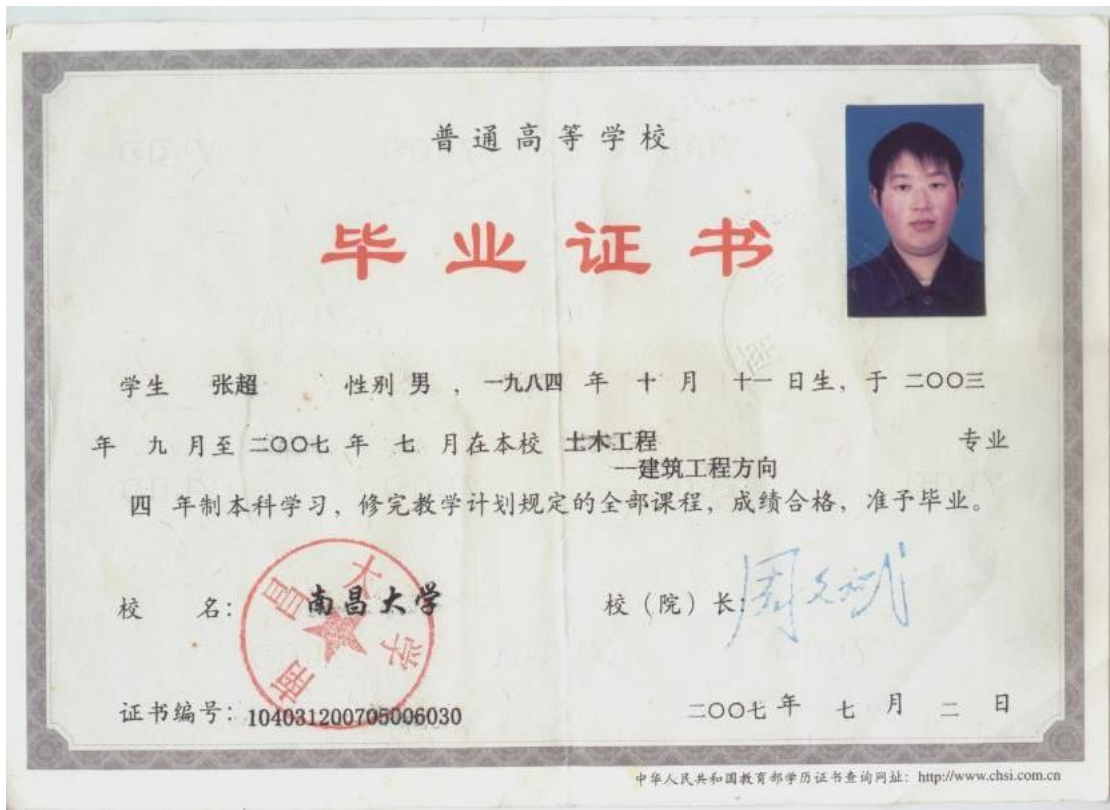 普通高等学校
毕业证书
学生 张超 性别 男 ，一九八四 年 十 月 十一 日生，于 二〇〇三
年 九 月至 二〇〇七 年 七 月在本校 土木工程 专业
--建筑工程方向
四 年制本科学习，修完教学计划规定的全部课程，成绩合格，准予毕业。
校 名： 南昌大学 校（院）长： 周文斌
南昌大学
证书编号：104031200705006030 二〇〇七 年 七 月 二 日
中华人民共和国教育部学历证书查询网址：http://www.chsi.com.cn